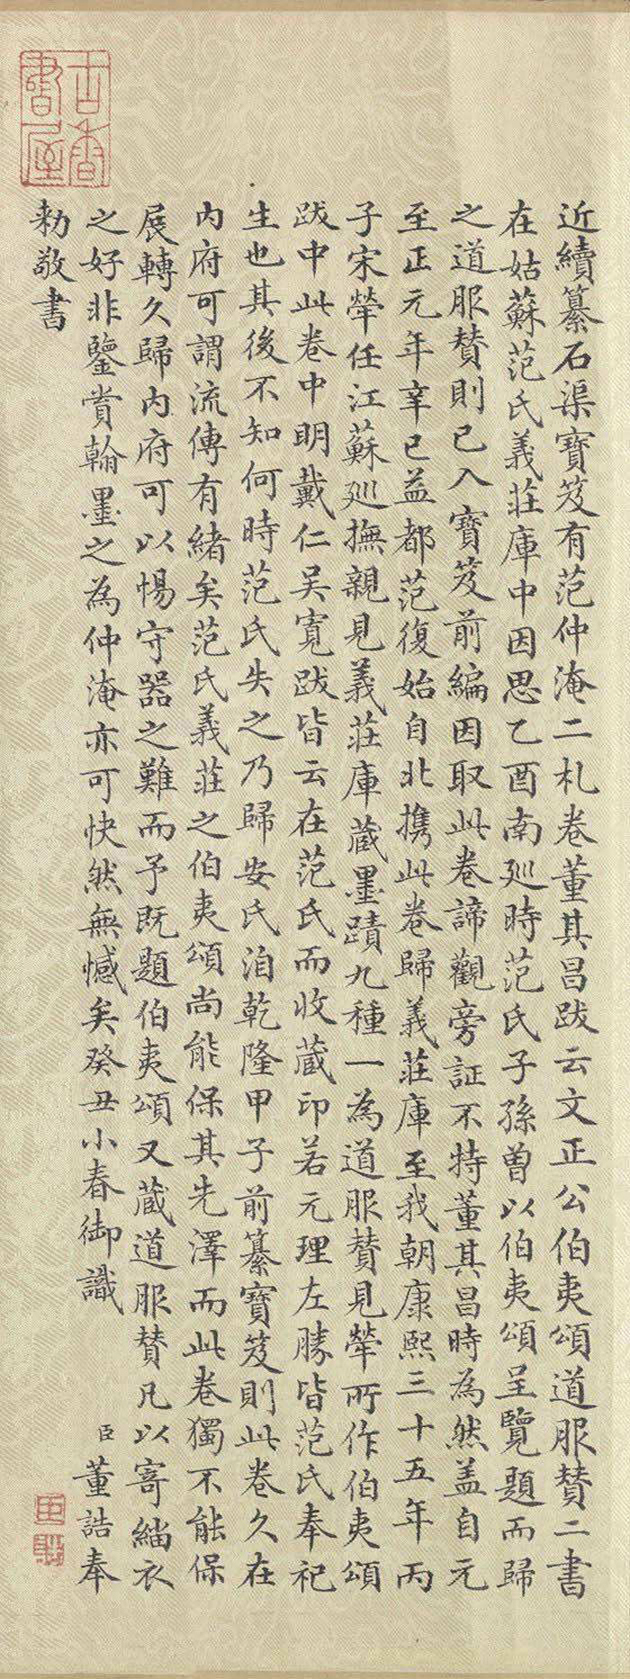 近續纂石渠寶笈有范仲淹二札卷董其昌跋云文正公伯夷頌道服贊二書
在姑蘇范氏義莊庫中因思乙酉南廵時范氏子孫曾以伯夷頌呈覽題而歸
之道服贊則已入寶笈前編因取此卷諦觀旁証不特董其昌時為然盖自元
至正元年辛巳益都范復始自北携此卷歸義莊庫至我朝康熙三十五年丙
子宋犖任江蘇廵撫親見義莊庫蔵墨蹟九種一為道服贊見犖所作伯夷頌
跋中此卷中明戴仁吴寛跋皆云在范氏而收蔵印若元理左勝皆范氏奉祀
生也其後不知何時范氏失之乃歸安氏洎乾隆甲子前纂寶笈則此卷久在
内府可謂流傳有緒矣范氏義莊之伯夷頌尚能保其先澤而此卷獨不能保
展轉久歸内府可以惕守器之難而予既題伯夷頌又蔵道服贊凡以寄緇衣
之好非鑒賞翰墨之為仲淹亦可快然無憾矣癸丑小春御識
臣董誥奉
勅敬書
古香書屋